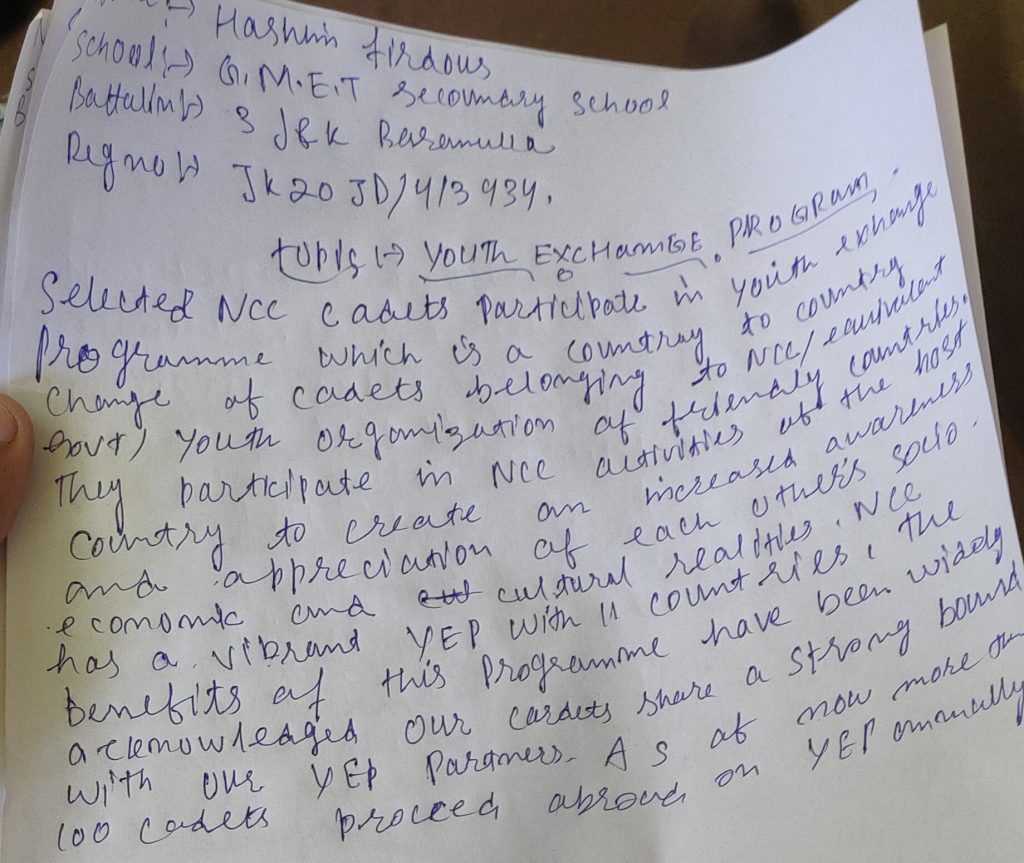 Hashim firdous
School :-) G.M.E.T Secoundary School
Battallin :-) 3 J&K Baramulla
Regno :-) JK20 JD/413934.
topis :-) YOUTH EXCHANGE. PROGRAM.
Selected NCC cadets Participate in youth exhange
Programme which is a countray to country
Change of cadets belonging to NCC/equivalent
Govt) youth organization of friendly countries.
They participate in NCC activities of the host
country to create an increased awareness
and appreciation of each other's socio.
economic and cultural realities. NCC
has a vibrand YEP with 11 countries, the
benefits of this programme have been widely
acknowledged our cardets share a strong bound
with our YEP Partners. AS of now more than
100 cadets proceed abroad on YEP annually